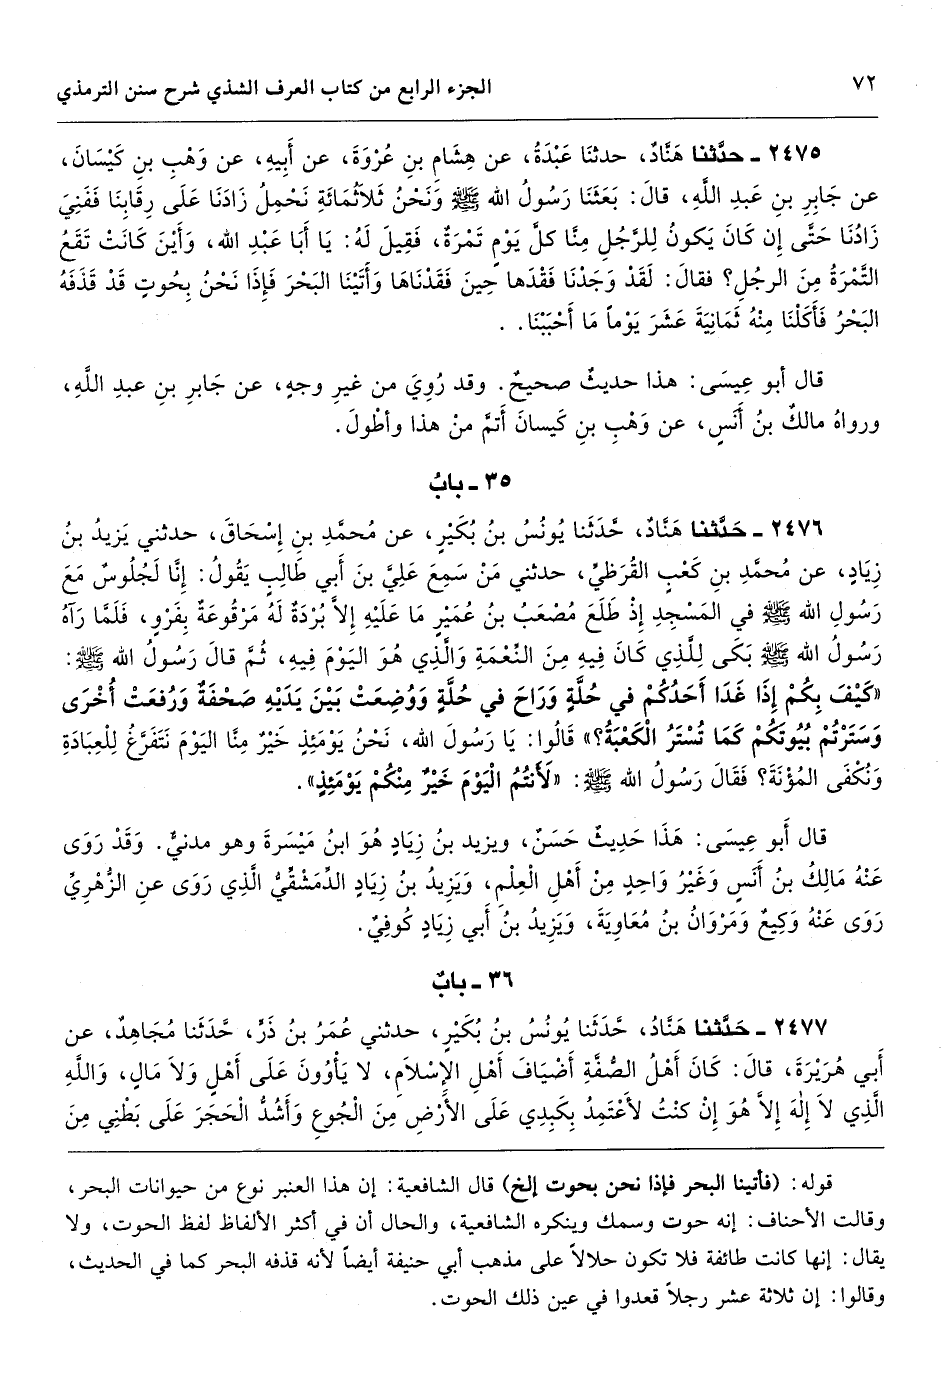 ٧٢
الجزء الرابع من كتاب العرف الشذي شرح سنن الترمذي
٢٤٧٥ ـ حدَّثنا هَنَّادٌ، حدثنَا عَبْدَةُ، عن هِشَامِ بنِ عُرْوَةَ، عن أَبِيهِ، عن وَهْبِ بنِ كَيْسَانَ،
عن جَابِرِ بنِ عَبدِ اللَّهِ، قالَ: بَعَثَنَا رَسُولُ الله ﷺ وَنَحْنُ ثَلاَثُمَائَةِ نَحْمِلُ زَادَنَا عَلَى رِقَابِنَا فَفَنِيَ
زَادُنَا حَتَّى إِن كَانَ يَكونُ لِلرَّجُلِ مِنَّا كلَّ يَوْمٍ تَمْرَةٌ، فَقِيلَ لَهُ: يَا أَبَا عَبْدِ الله، وَأَيْنَ كَانَتْ تَقَعُ
التَّمْرَةُ مِنَ الرجُلِ؟ فقالَ: لَقَدْ وَجَدْنَا فَقْدَها حِينَ فَقَدْنَاهَا وَأَتَيْنَا البَحْرَ فَإِذَا نَحْنُ بِحُوتٍ قَدْ قَذَفَهُ
البَحْرُ فَأَكَلْنَا مِنْهُ ثَمَانِيَةَ عَشَرَ يَوْماً مَا أَحْبَبْنَا. .
قال أبو عِيسَى: هذا حديثٌ صحيحٌ. وقد رُوِيَ من غيرِ وجهٍ، عن جَابِرِ بنِ عبدِ اللَّهِ،
ورواهُ مالكُ بنُ أَنَسٍ، عن وَهْبِ بنِ كَيسانَ أَتمَّ منْ هذا وأطْولَ.
٣٥ ـ بابُ
٢٤٧٦ ـ حَدَّثنا هَنَّادٌ، حَّدَثَنا يُونُسُ بنُ بُكَيْرٍ، عن مُحمَّدِ بنِ إِسْحَاقَ، حدثني يَزِيدُ بنُ
زِيَادٍ، عن مُحمدِ بنِ كَعْبٍ القُرَظيِّ، حدثني مَنْ سَمِعَ عَلِيَّ بنَ أَبي طَالِبٍ يَقُولُ: إِنَّا لَجُلُوسٌ مَعَ
رَسُولِ الله ﷺ في المَسْجِدِ إِذْ طَلَعَ مُصْعَبُ بنُ عُمَيْرٍ مَا عَلَيْهِ إِلاَّ بُرْدَةٌ لَهُ مَرْقُوعَةٌ بِفَرْوٍ، فَلَمَّا رَآهُ
رَسُولُ الله ﷺ بَكَى لِلَّذِي كَانَ فِيهِ مِنَ النِّعْمَةِ وَالَّذِي هُوَ اليَوْمَ فِيهِ، ثُمَّ قالَ رَسُولُ الله ﷺ:
«كَيْفَ بِكُمْ إِذَا غَدَا أَحَدُكُمْ في حُلَّةٍ وَرَاحَ في حُلَّةٍ وَوُضِعَتْ بَيْنَ يَدَيْهِ صَحْفَةٌ وَرُفعَتْ أُخْرَى
وَسَتَرْتُمْ بُيُوتَكُمْ كَمَا تُسْتَرُ الْكَعْبَةُ؟» قَالُوا: يَا رَسُولَ الله، نَحْنُ يَوْمَئِذٍ خَيْرٌ مِنَّا اليَوْمَ نَتَفَرَّغُ لِلعِبَادَةِ
وَنُكْفَى المُؤْنَةَ؟ فَقَالَ رَسُولُ الله ﷺ: «لَأَنتُمُ الْيَوْمَ خَيْرٌ مِنْكُمْ يَوْمَئِذٍ».
قال أَبو عِيسَى: هَذَا حَدِيثٌ حَسَنٌ، ويزيد بنُ زِيَادٍ هُوَ ابنُ مَيْسَرةَ وهو مدنيٌّ. وَقَدْ رَوَى
عَنْهُ مَالِكُ بنُ أَنسٍ وَغَيْرُ وَاحِدٍ مِنْ أَهلِ الْعِلْمِ، وَيَزِيدُ بنُ زِيَادٍ الدِّمَشْقيُّ الَّذِي رَوَى عنِ الزُّهْرِيِّ
رَوَى عَنْهُ وَكِيعٌ وَمَرْوَانُ بنُ مُعَاوِيَةَ، وَيَزِيدُ بنُ أَبي زِيَادٍ كُوفِيٌ.
٣٦ ـ بابٌ
٢٤٧٧ ـ حَدَّثنا هَنَّادُ، حَّدَثَنا يُونُسُ بنُ بُكَيْرٍ، حدثني عُمَرُ بنُ ذَرٍّ، حَّدَثَنا مُجَاهِدٌ، عن
أَبي هُرَيْرَةَ، قالَ: كَانَ أَهْلُ الصُّفَّةِ أَضْيَافَ أَهْلِ الإِسْلاَمِ، لا يَأْوُونَ عَلَى أَهْلٍ وَلاَ مَالٍ، وَاللَّهِ
الَّذِي لاَ إِلٰهَ إِلاَّ هُوَ إِنْ كنْتُ لأَعْتَمِدُ بِكَبِدِي عَلَى الأَرْضِ مِنَ الْجُوعِ وَأَشُدُّ الْحَجَرَ عَلَى بَطْنِي مِنَ
قوله: (فأتينا البحر فإذا نحن بحوت إلخ) قال الشافعية: إن هذا العنبر نوع من حيوانات البحر،
وقالت الأحناف: إنه حوت وسمك وينكره الشافعية، والحال أن في أكثر الألفاظ لفظ الحوت، ولا
يقال: إنها كانت طائفة فلا تكون حلالاً على مذهب أبي حنيفة أيضاً لأنه قذفه البحر كما في الحديث،
وقالوا: إن ثلاثة عشر رجلاً قعدوا في عين ذلك الحوت.